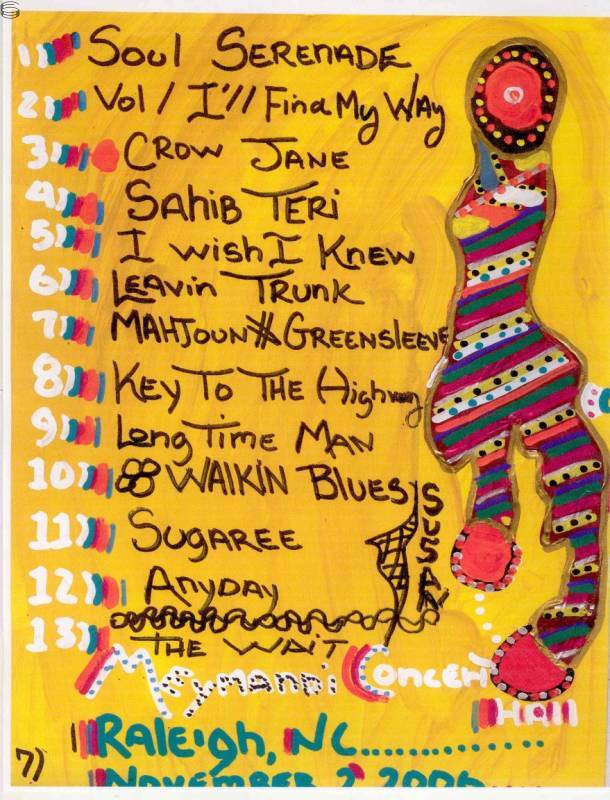 1) Soul Serenade
2) Vol / I'll Find My Way
3) Crow Jane
4) Sahib Teri
5) I wish I Knew
6) Leavin Trunk
7) Mahjoun Greensleeve
8) Key To The Highway
9) Long Time Man
10) Walkin Blues
11) Sugaree
SUSAN
12) Anyday
13) The Wait
Meymandi Concert
Hall
Raleigh, NC..............
7)
November 2 2006....